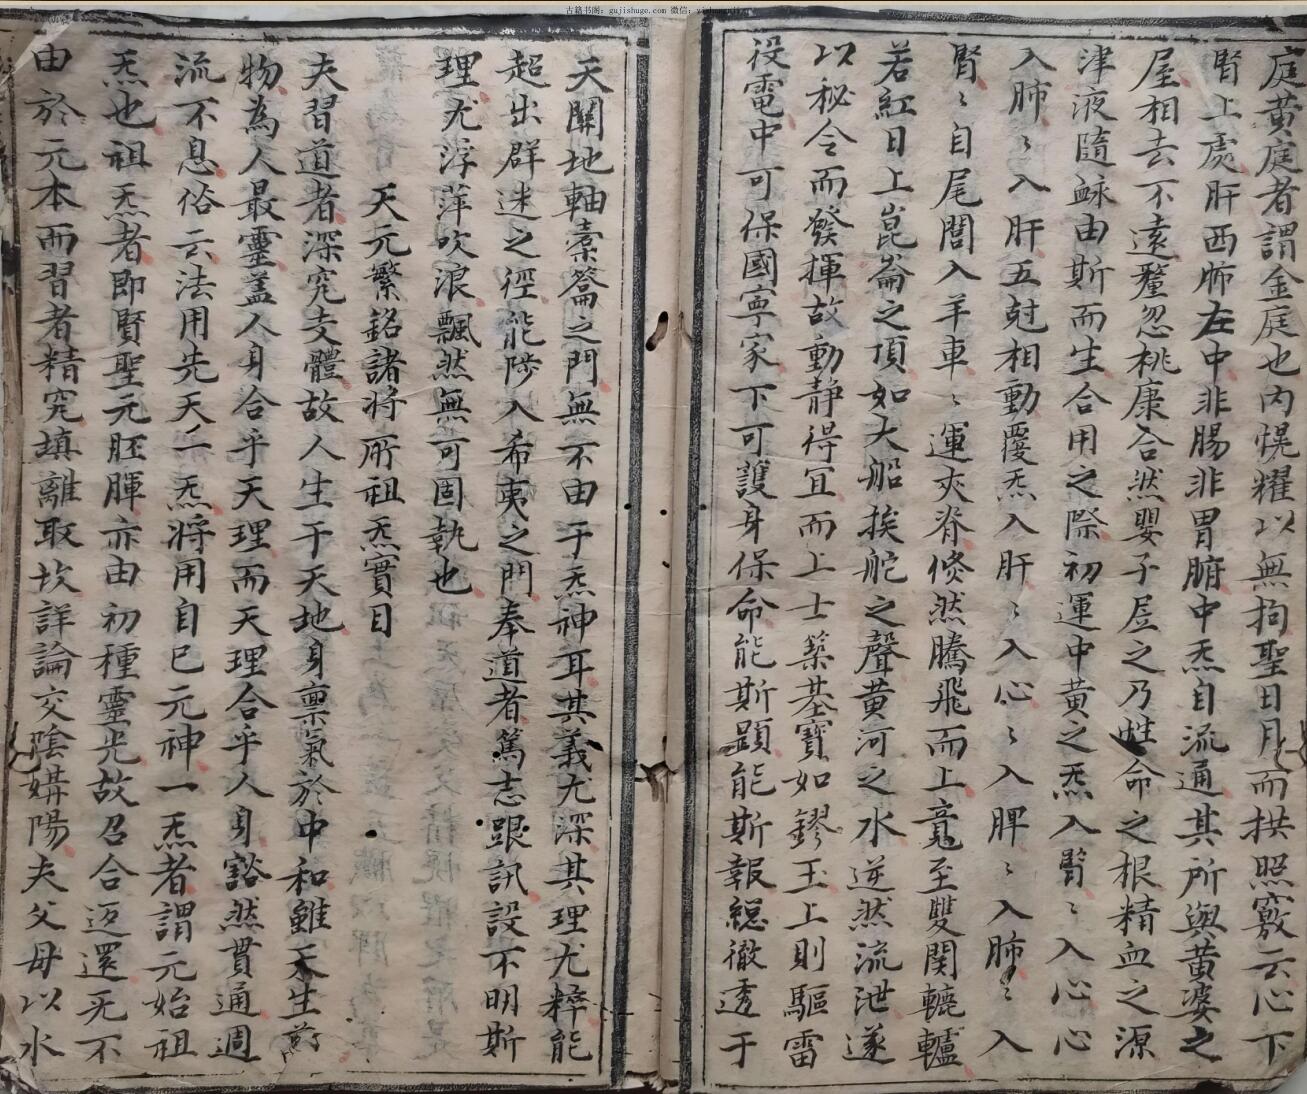 古籍书阁：gujishuge.com 微信：
庭黄庭者謂金庭也内愰耀以無拘聖日月而拱照竅云心下
腎上處肝西肺左中非腸非胃腑中炁自流通其所與黄婆之
屋相去不遠釐忽桃康合然嬰子居之乃性命之根精血之源
津液隨蘇由斯而生合用之際初運中黄之炁入腎〻入心心
入肺〻入肝五尅相動覆炁入肝〻入心〻入脾〻入肺〻入
腎〻自尾閭入羊車〻運夾脊倏然騰飛而上竟至雙関轆轤
若紅日上崑崙之頂如大船挨舵之聲黄河之水逆然流泄遂
以秘令而發揮故動静得宜而上士築基寶如鏐玉上則驅雷
役電中可保國寧家下可護身保命能斯顕能斯報緫徹透于
天關地軸橐籥之門無不由于炁神耳其義尤深其理尤粹能
超出群迷之徑能陟入希夷之門奉道者篤志跟訊設不明斯
理尤浮萍吹浪飄然無可固執也
天元繁銘諸將所祖炁實目
夫習道者深究支體故人生于天地身禀氣於中和雖天生萬
物為人最靈盖人身合乎天理而天理合乎人身豁然貫通週
流不息俗云法用先天一炁將用自己元神一炁者謂元始祖
炁也祖炁者即賢聖元胚腪亦由初種靈光故召合迈還无不
由於元本而習者精究填離取坎詳論交陰媾陽夫父母以水